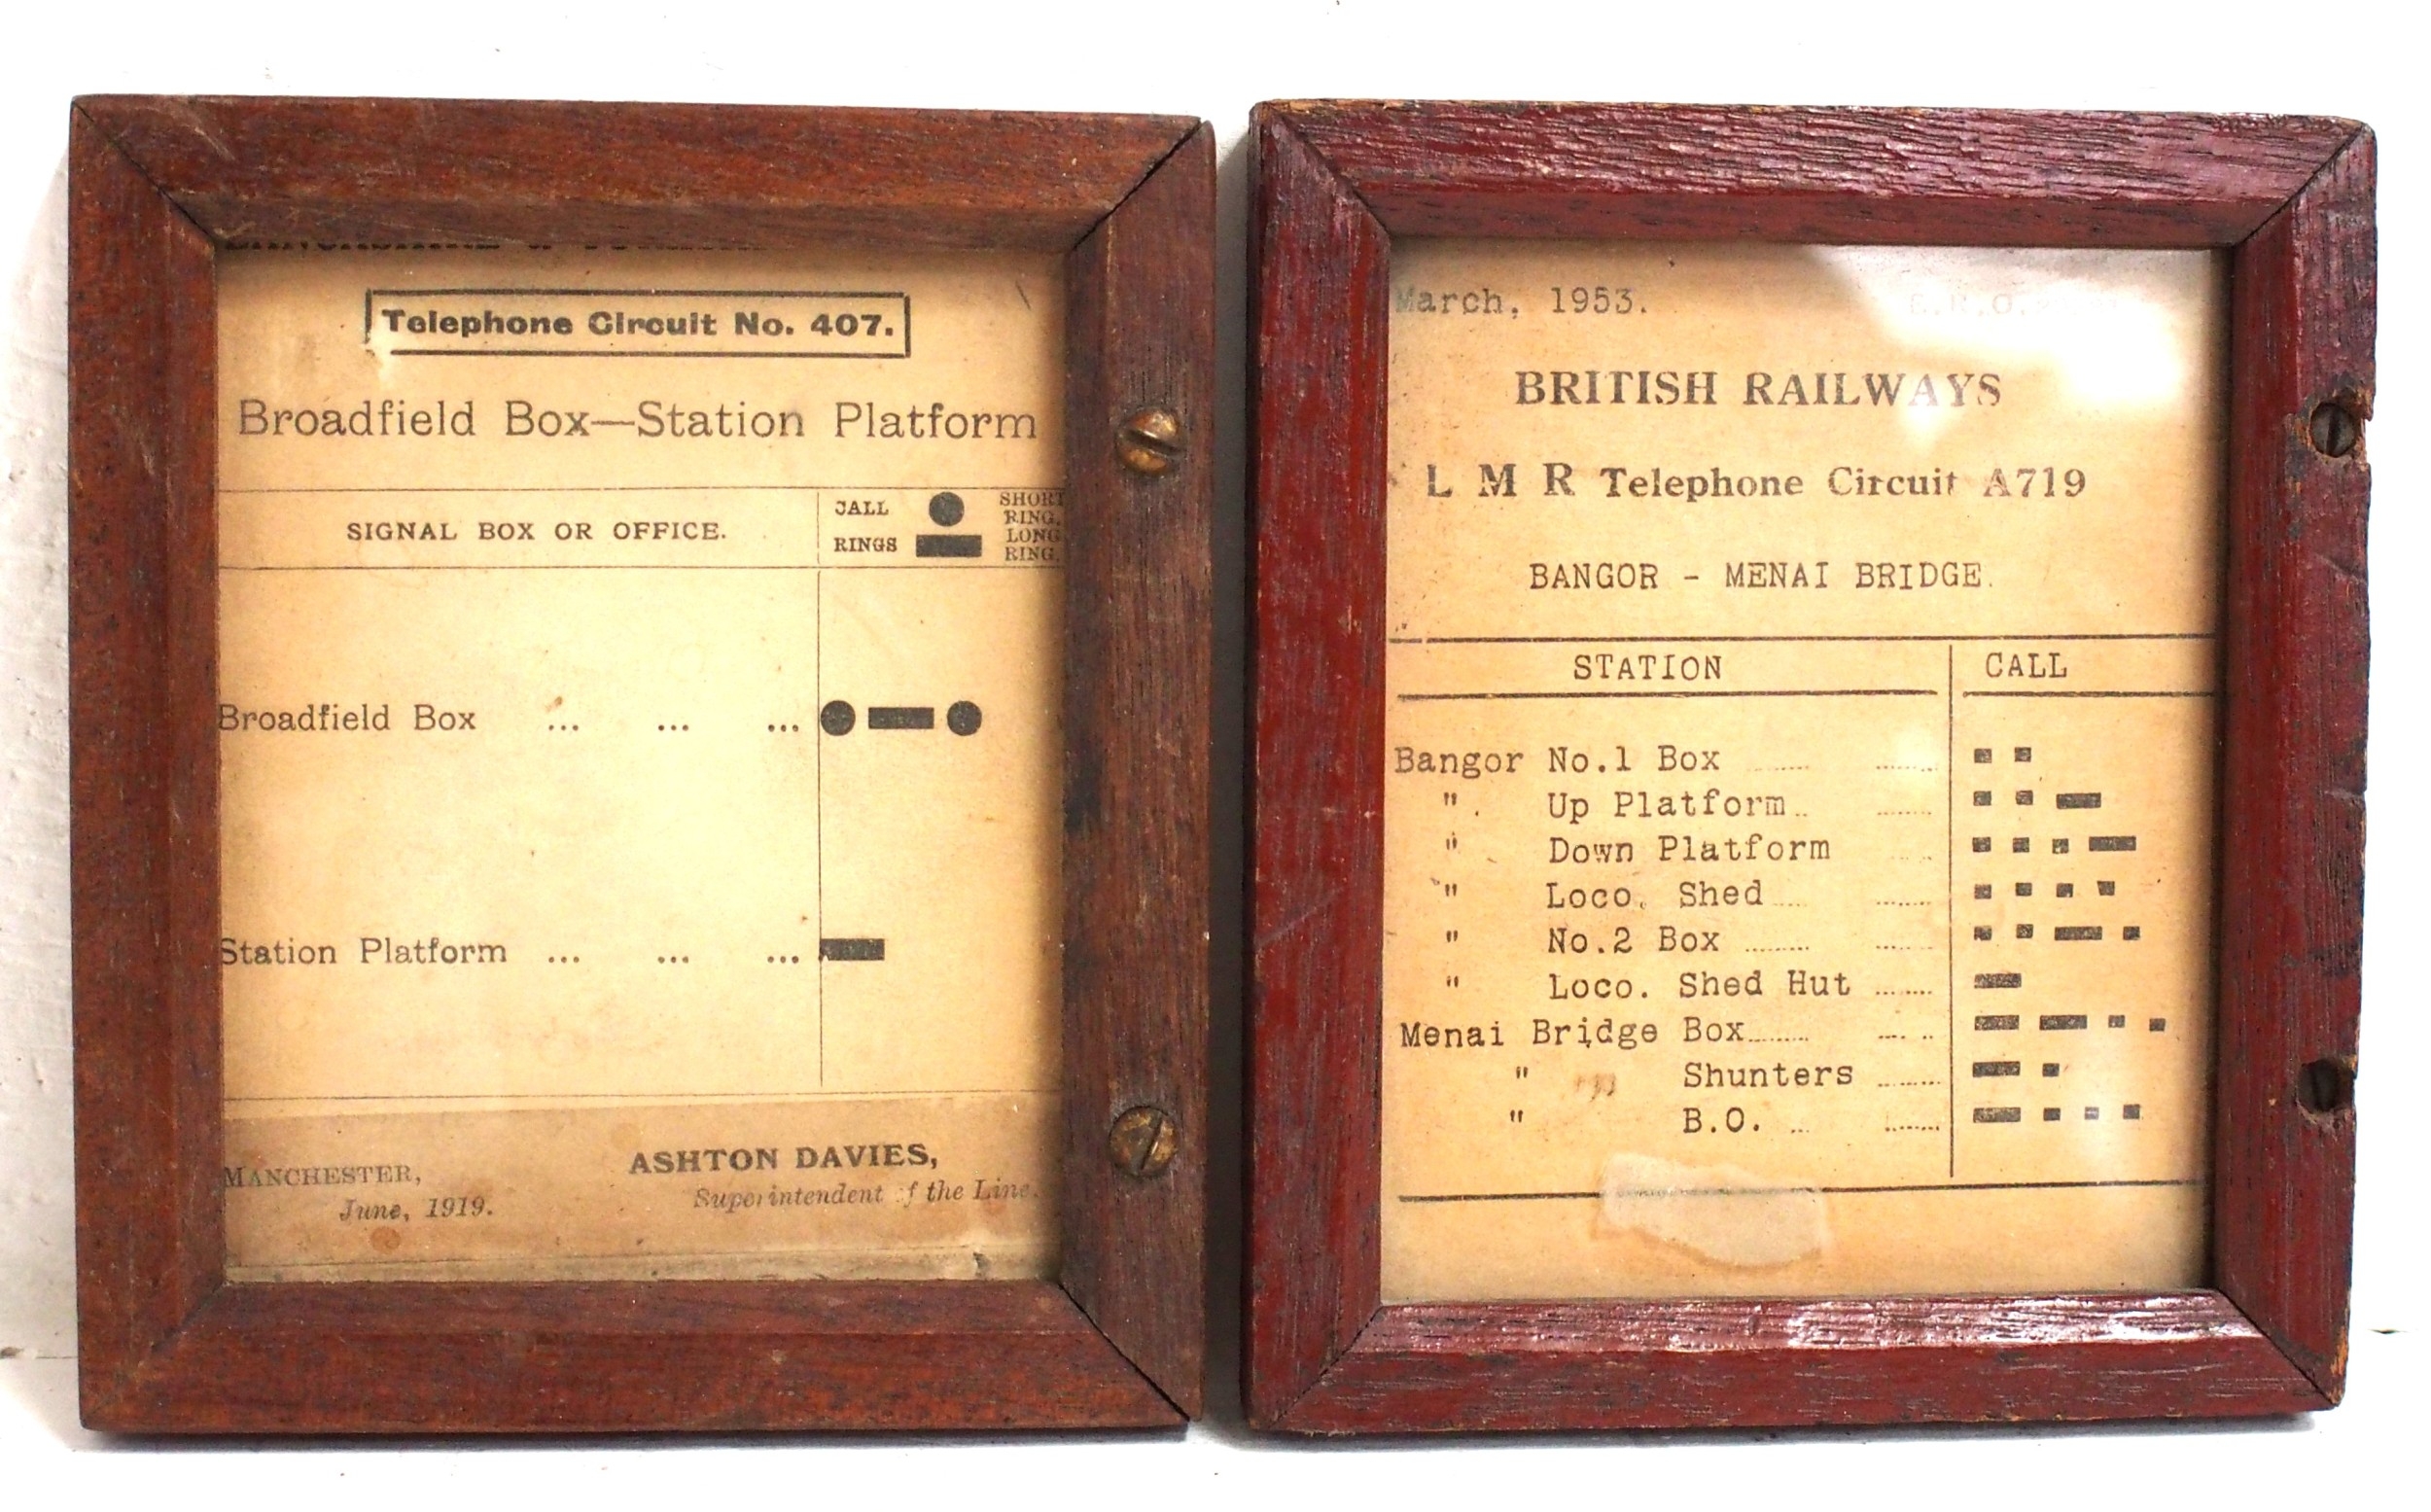 Telephone Circuit No. 407.
Broadfield Box—Station Platform
SIGNAL BOX OR OFFICE.
CALL RINGS
SHORT RING.
LONG RING.
Broadfield Box ... ... ...
Station Platform ... ... ...
MANCHESTER,
June, 1919.
ASHTON DAVIES,
Superintendent of the Line.
March, 1953.
BRITISH RAILWAYS
L M R Telephone Circuit A719
BANGOR - MENAI BRIDGE.
STATION CALL
Bangor No.1 Box
" Up Platform
" Down Platform
" Loco. Shed
" No.2 Box
" Loco. Shed Hut
Menai Bridge Box
" " Shunters
" B.O.